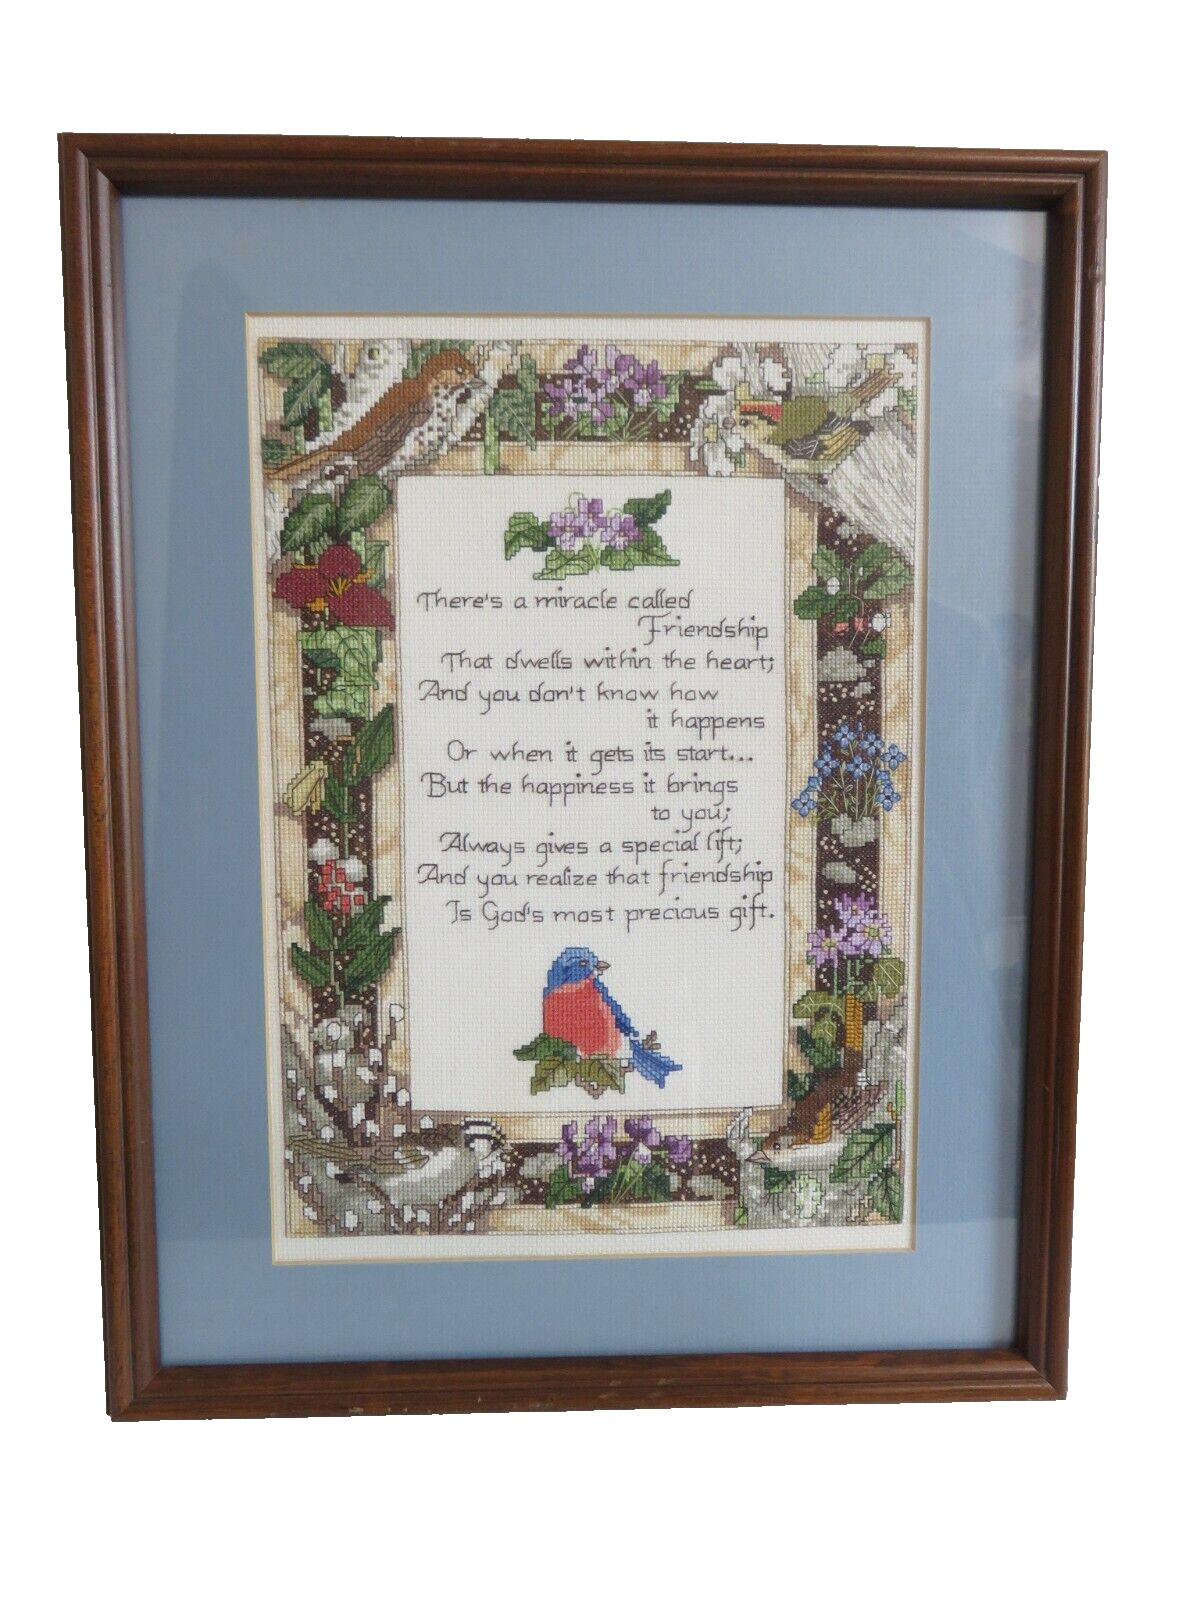 There's a miracle called
Friendship
That dwells within the heart;
And you don't know how
it happens
Or when it gets its start...
But the happiness it brings
to you;
Always gives a special lift;
And you realize that friendship
Is God's most precious gift.